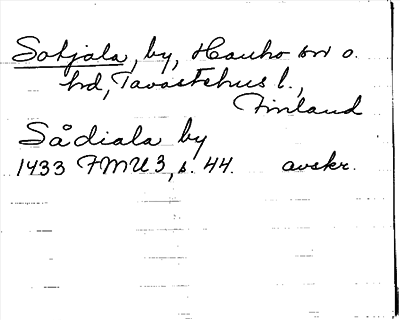 Sotjala, by, Hauho sn o.
hd, Tavastehus l.,
Finland
Sådiala by
1433 FMU 3, s. 44. avskr.